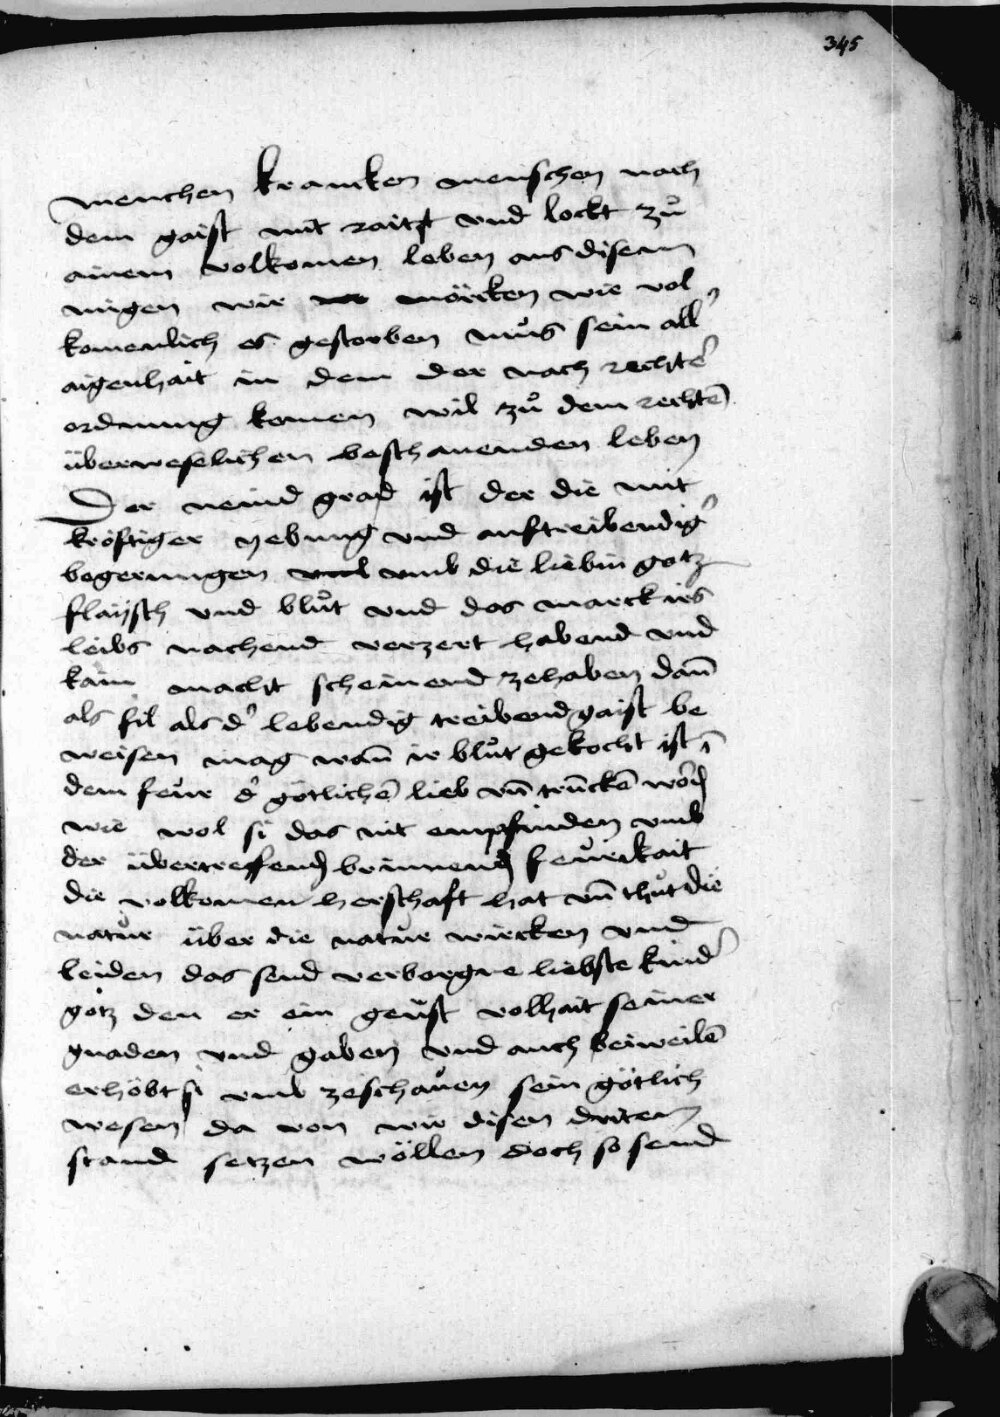 345
menchen krancken menschen nach
dem gaist mit raitzt vnd lockt zů
ainem volkomen leben aus disem
mügen wir mörcken wie vol
komenlich es gestorben můs sein all
aigenhait in dem der nach rechter̉
ordnung komen wil zů dem rechtē
überweselichen beschauenden leben
Der neünd grad ist der die mit
kröftiger yebung vnd auftreibendig̉
begerungen vnd vmb die liebin gotz
flaÿsch vnd blůt vnd das marck irs
leibs nachend verzert habend vnd
kain macht scheinend zehaben dan̄
als fil als d̉ lebendig treibend gaist be
weisen mag wan̄ ir blůt gekocht ist ī
dem feůr d̉ götlichē lieb vn̄ trūckē word̄
wie wol si das nit empfinden vmb
der übertreffend̄ brinnend̄ feůrikait
die volkomen herschaft hat vn̄ thůt die
natůr über die natůr wircken vnd
leiden das send verborgne liebste kind̉
gotz den er ein geüst volhait seiner
gnaden vnd gaben vnd auch beiweilē
erhöbt si vmb zeschauen sein götlich
wesen da von wir disen driten
stand setzen wöllen doch so send